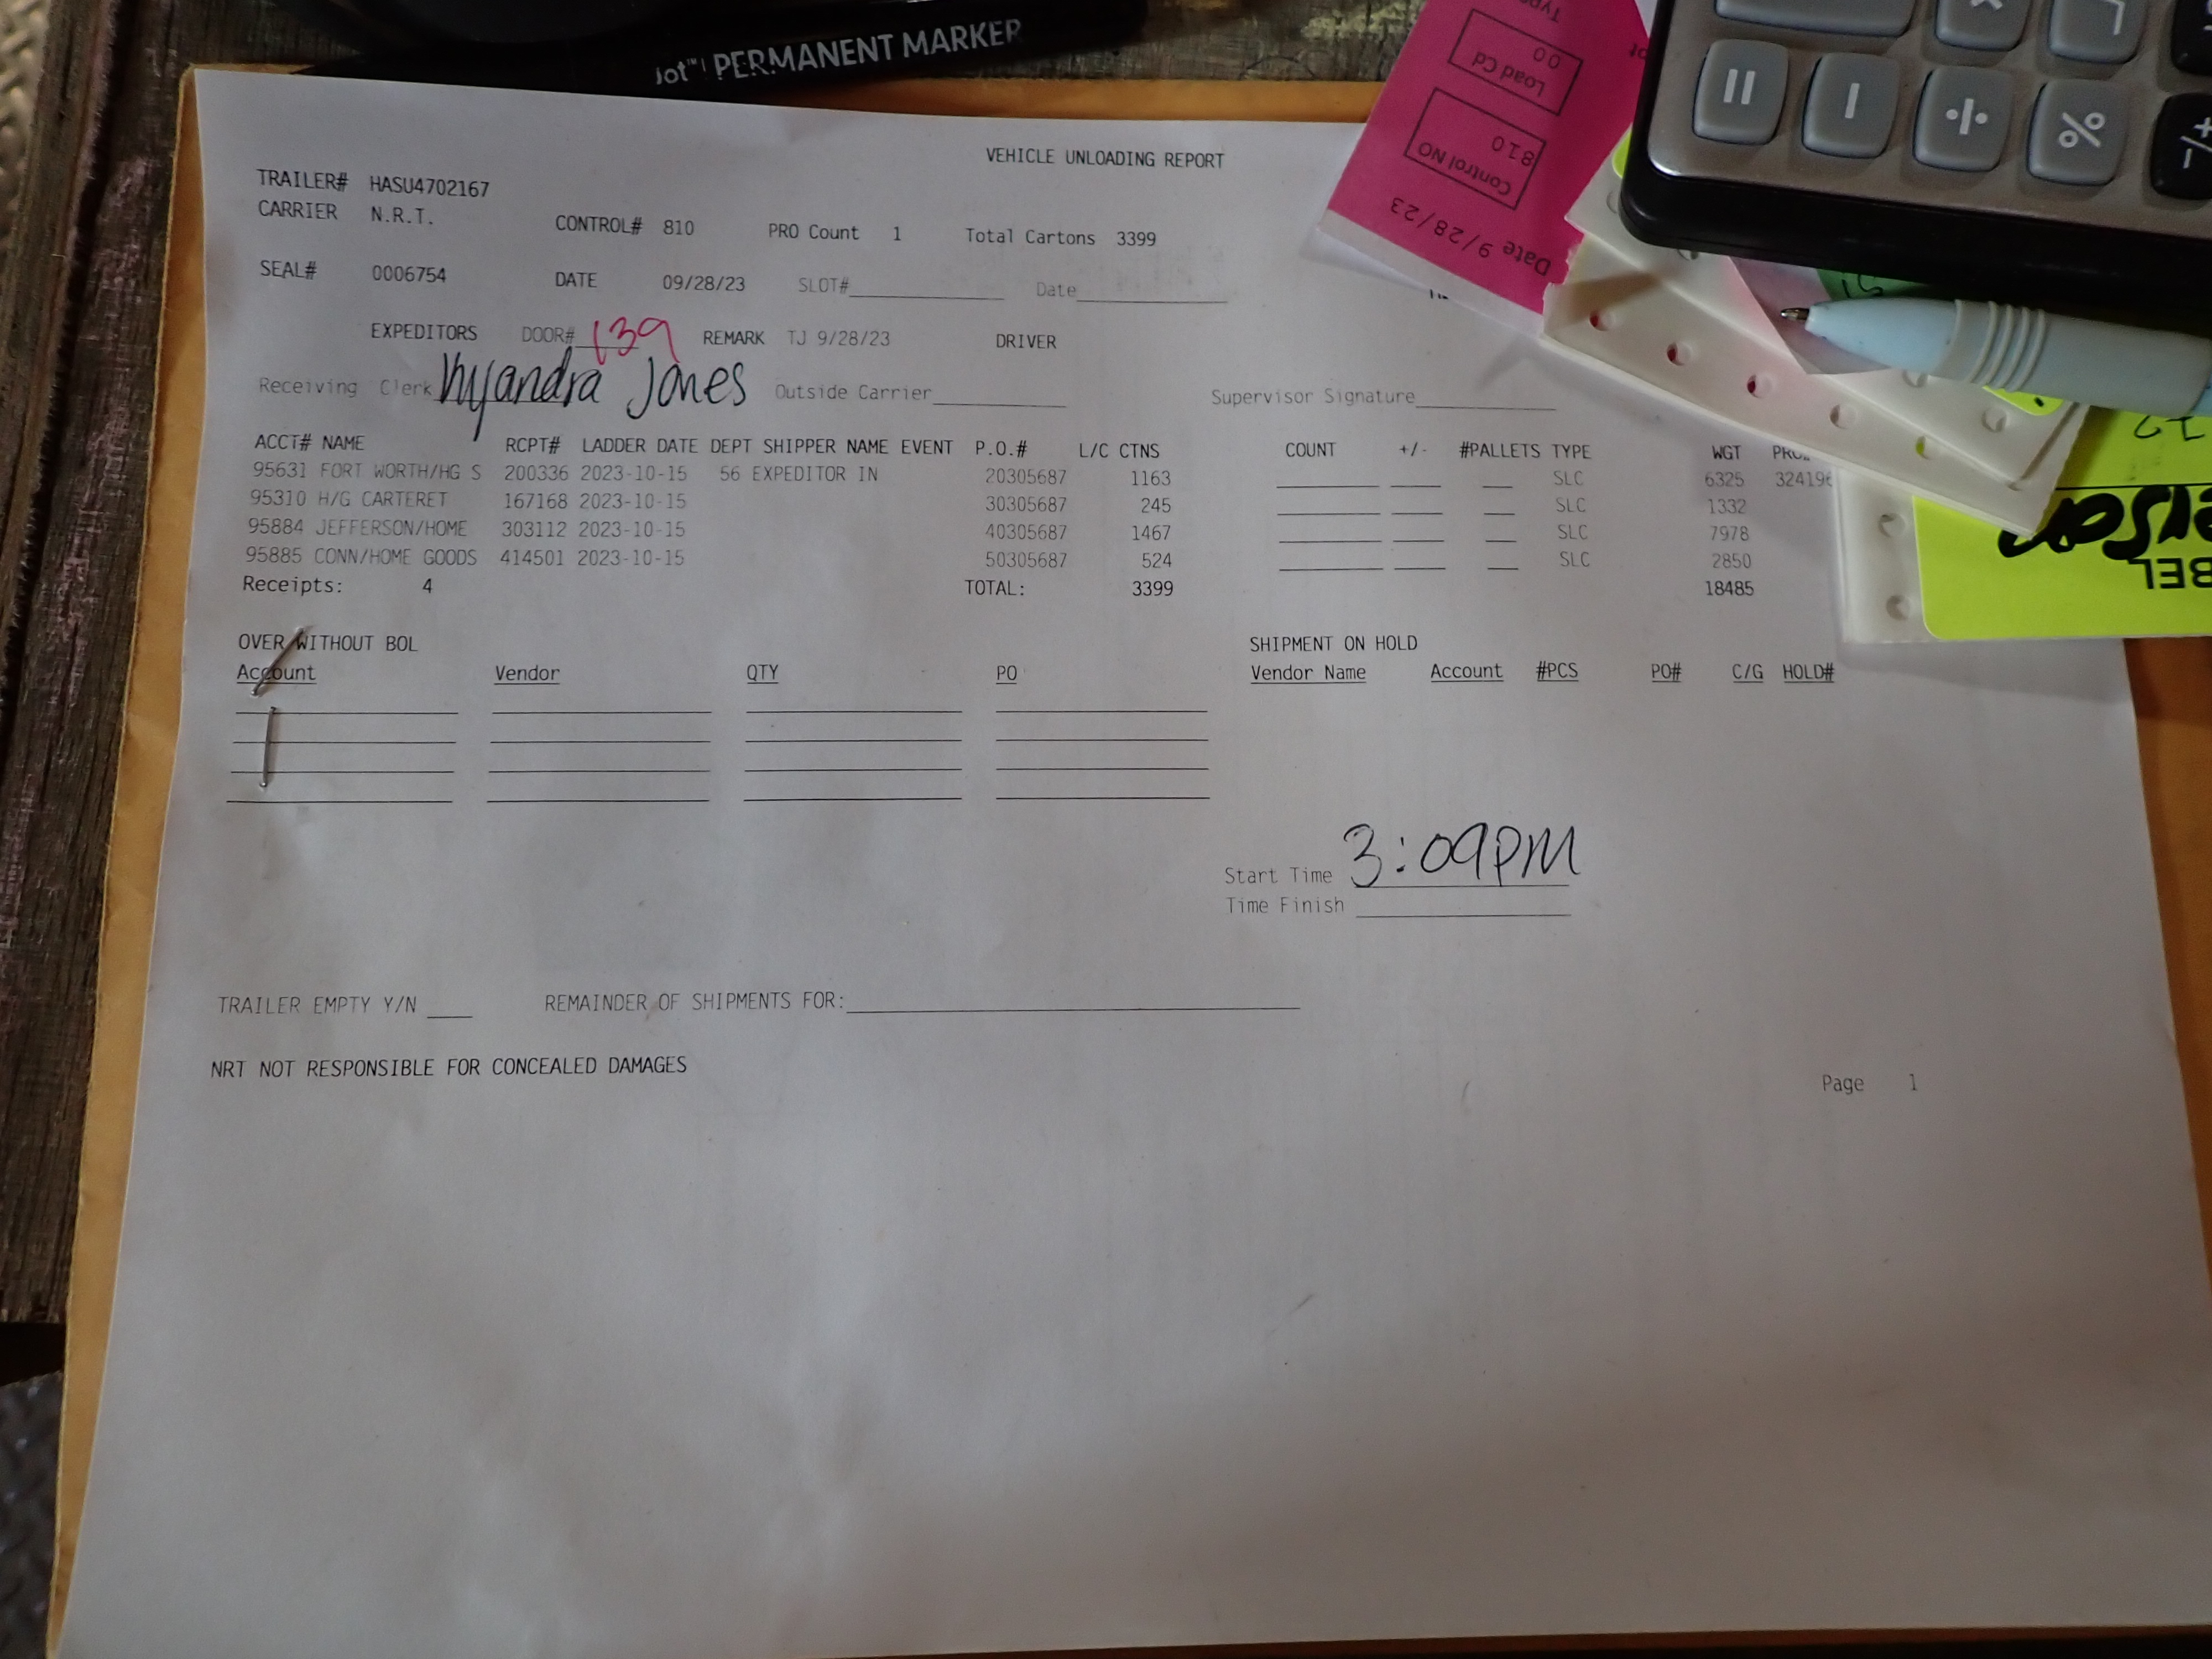 Jot™ PERMANENT MARKER
VEHICLE UNLOADING REPORT
TRAILER# HASU4702167
CARRIER N.R.T. CONTROL# 810 PRO Count 1 Total Cartons 3399
SEAL# 0006754 DATE 09/28/23 SLOT# Date
EXPEDITORS DOOR# 139 REMARK TJ 9/28/23 DRIVER
Receiving Clerk Jones Outside Carrier Supervisor Signature
ACCT# NAME RCPT# LADDER DATE DEPT SHIPPER NAME EVENT P.O.# L/C CTNS COUNT +/- #PALLETS TYPE WGT
95631 FORT WORTH/HG S 200336 2023-10-15 56 EXPEDITOR IN 20305687 1163 SLC 6325 324196
95310 H/G CARTERET 167168 2023-10-15 30305687 245 SLC 1332
95884 JEFFERSON/HOME 303112 2023-10-15 40305687 1467 SLC 7978
95885 CONN/HOME GOODS 414501 2023-10-15 50305687 524 SLC 2850
Receipts: 4 TOTAL: 3399 18485
OVER WITHOUT BOL SHIPMENT ON HOLD
Account Vendor QTY PO Vendor Name Account #PCS PO# C/G HOLD#
Start Time 3:09PM
Time Finish
TRAILER EMPTY Y/N REMAINDER OF SHIPMENTS FOR:
NRT NOT RESPONSIBLE FOR CONCEALED DAMAGES
Page 1
Date 9/28/23
Control NO
810
Load Cd
00
=
-
÷
%
+/-